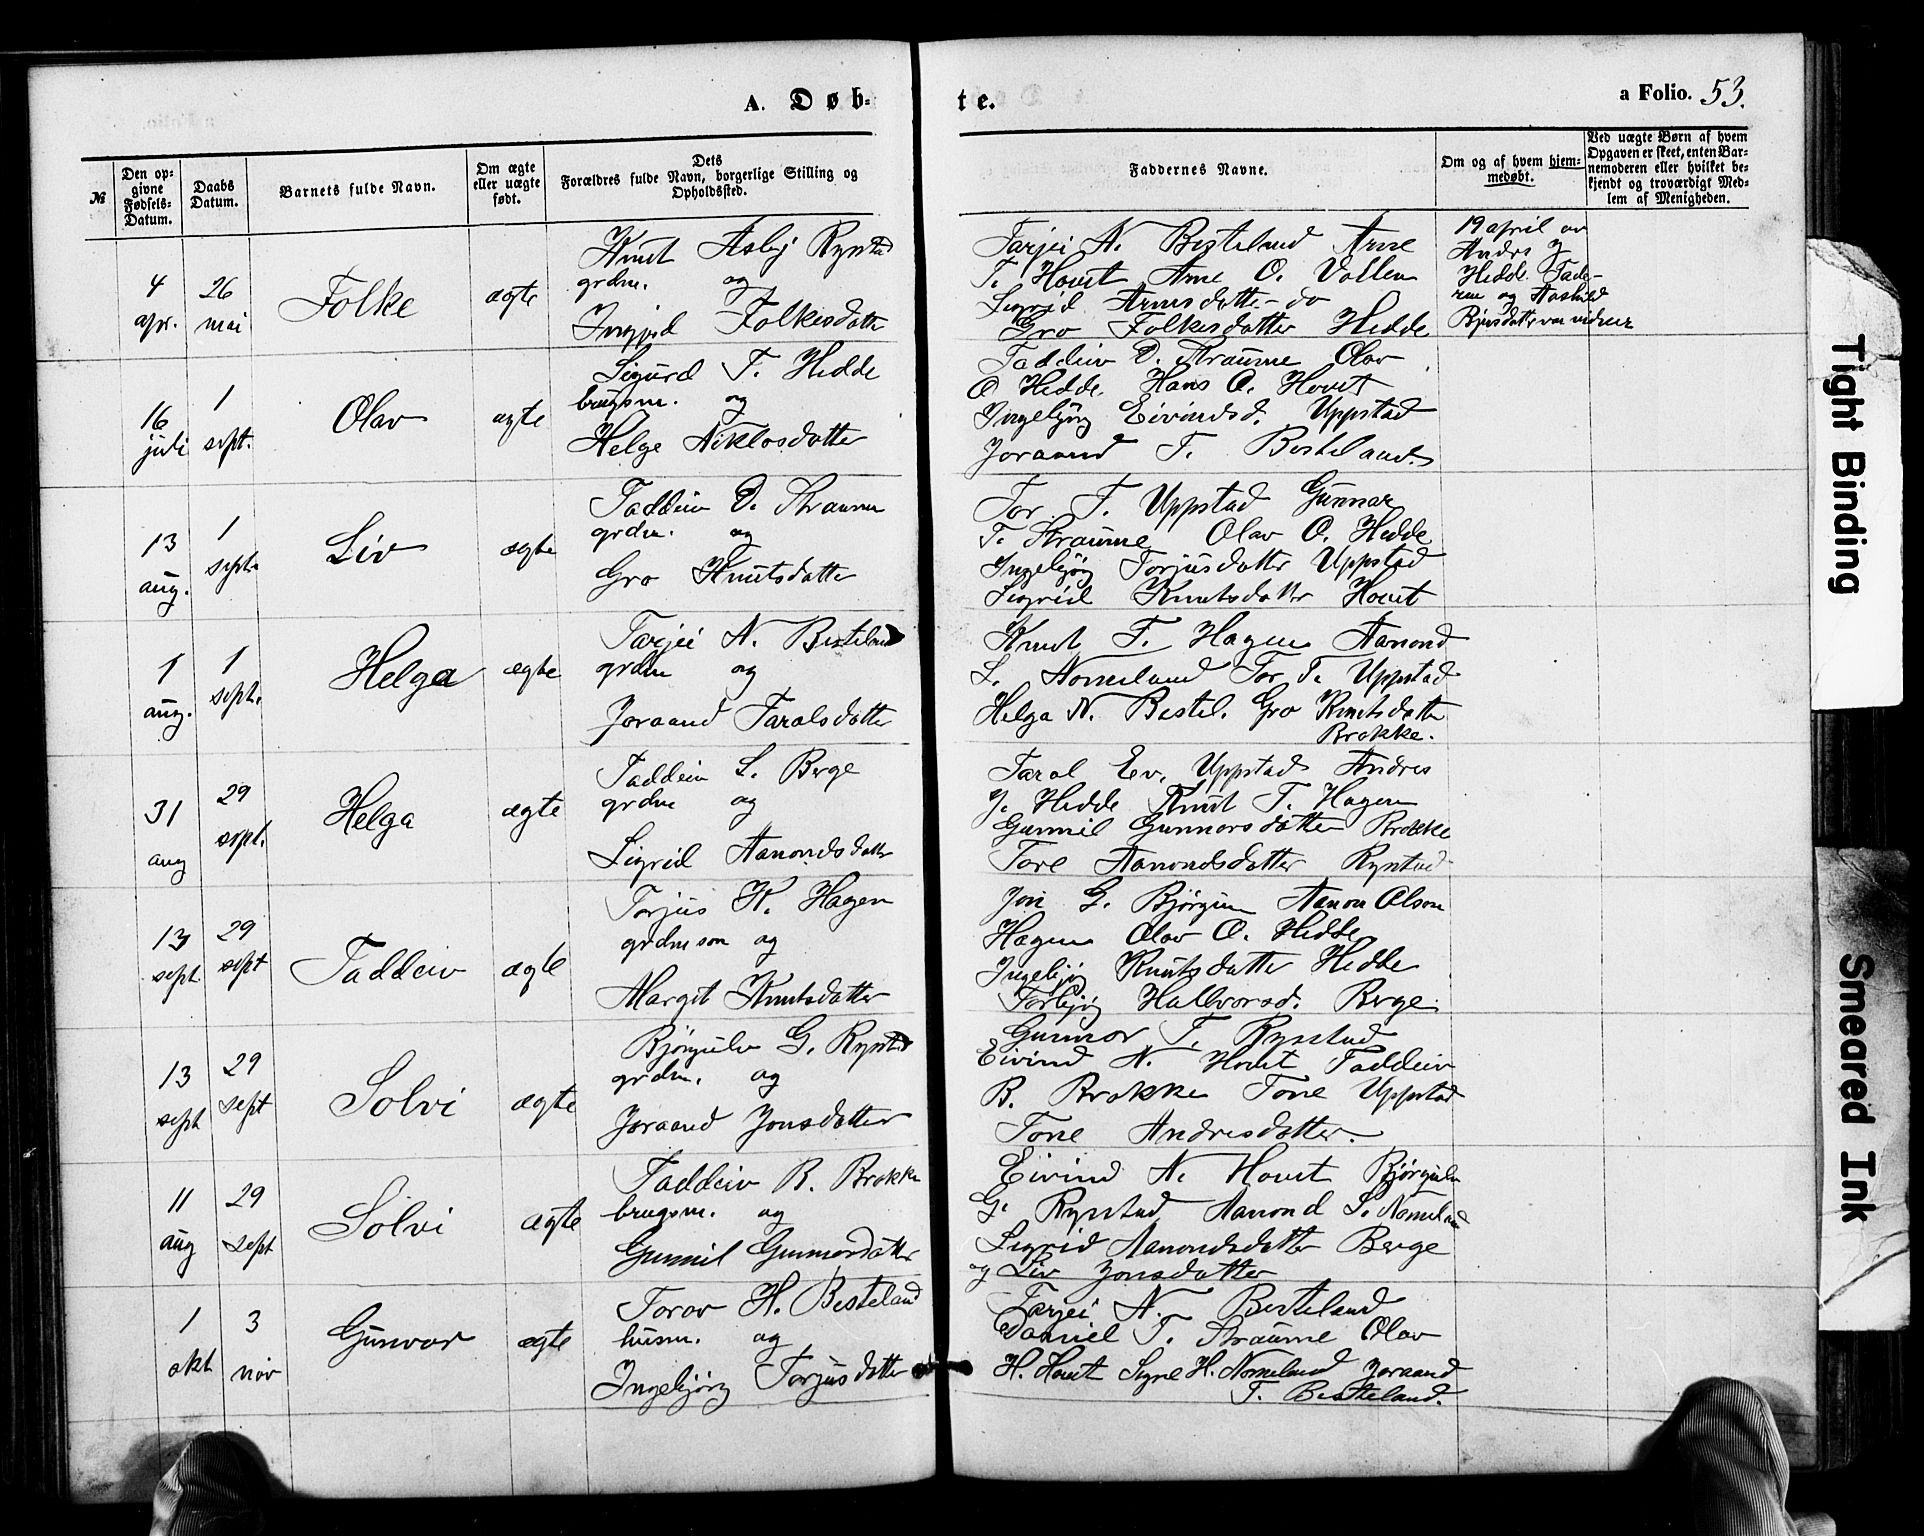 A. Døb-
te.
a Folio. 53.
№
Den op-
givne
Fødsels-
Datum.
Daabs
Datum.
Barnets fulde Navn.
Om ægte
eller uægte
født.
Dets
Forældres fulde Navn, borgerlige Stilling og
Opholdssted.
Faddernes Navne.
Om og af hvem hjem-
medøbt.
Ved uægte Børn af hvem
Opgaven er skeet, enten Bar-
nemoderen eller hvilket be-
kjendt og troværdigt Med-
lem af Menigheden.
4
apr.
26
mai
Folke
ægte
Knut Aslej Rystad
grdm. og
Ingjerd Folkesdatter
Tarjei N. Besteland Arne
T. Hovet Arne O. Vollen
Sigrid Arnesdatter do
Gro Folkesdatter Hedde
19 april av
Andrs J
Hedde. Fade-
ren og Aashild
var vidner
16
juli
1
sept.
Olav
ægte
Sigurd T. Hedde
brugsm. og
Helge Niklosdatter
Taddeiv D. Straume Olav
O Hedde. Hans O. Hovet
Ingebjørg Eivindsd. Uppstad
Joraand T. Besteland.
13
aug.
1
sept.
Liv
ægte
Taddeiv D. Straume
grdm. og
Gro Knutsdatter
Tor T. Uppstad Gunnar
T. Straume Olav O. Hedde
Ingebjørg Torjusdatter Uppstad
Sigrid Knutsdatter Hovet
1
aug.
1
sept.
Helga
ægte
Tarjei N. Besteland
grdm og
Joraand Taralsdatter
Knut T. Hagen Aanond
L. Nomeland Tor T. Uppstad
Helga N. Bestel. Gro Knutsdatter
Brokke.
31
aug
29
sept.
Helga
ægte
Taddeiv L. Berge
grdm og
Sigrid Aanondsdatter
Taral Ev. Uppstad Andres
J. Hedde Knut T. Hagen
Gunnil Gunnarsdatter Brokke
Tore Aanondsdatter Rystad
13
sept
29
sept
Taddeiv
ægte
Torjus K. Hagen
grdmson og
Margit Knutsdatter
Jon G. Bjørgum Aanon Olson
Hagen Olav O. Hedde
Ingebjør Knutsdatter Hedde
Torbjør Hallvorsd. Berge.
13
sept
29
sept
Solvi
ægte
Bjørgulv G. Rystad
grdm. og
Joraand Jonsdatter
Gunnar T. Rysstad
Eivind N. Hovet Taddeiv
B. Brokke Tone Uppstad
Tone Andresdatter.
11
aug
29
sept
Solvi
ægte
Taddeiv B. Brokke
brugsm. og
Gunnil Gunnarsdatter
Eivind N. Hovet Bjørgulv
G. Rystad Aanond L. Nomeland
Sigrid Aanondsdatter Berge
og Liv Jonsdatter
1
okt
3
nov
Gunvor
ægte
Torov H. Besteland
husm. og
Ingebjørg Torjusdatter
Tarjei N. Besteland
Daniel T. Straume Olav
H. Hovet Signe H. Nomeland Joraand
T. Besteland.
Tight Binding
Smeared Ink